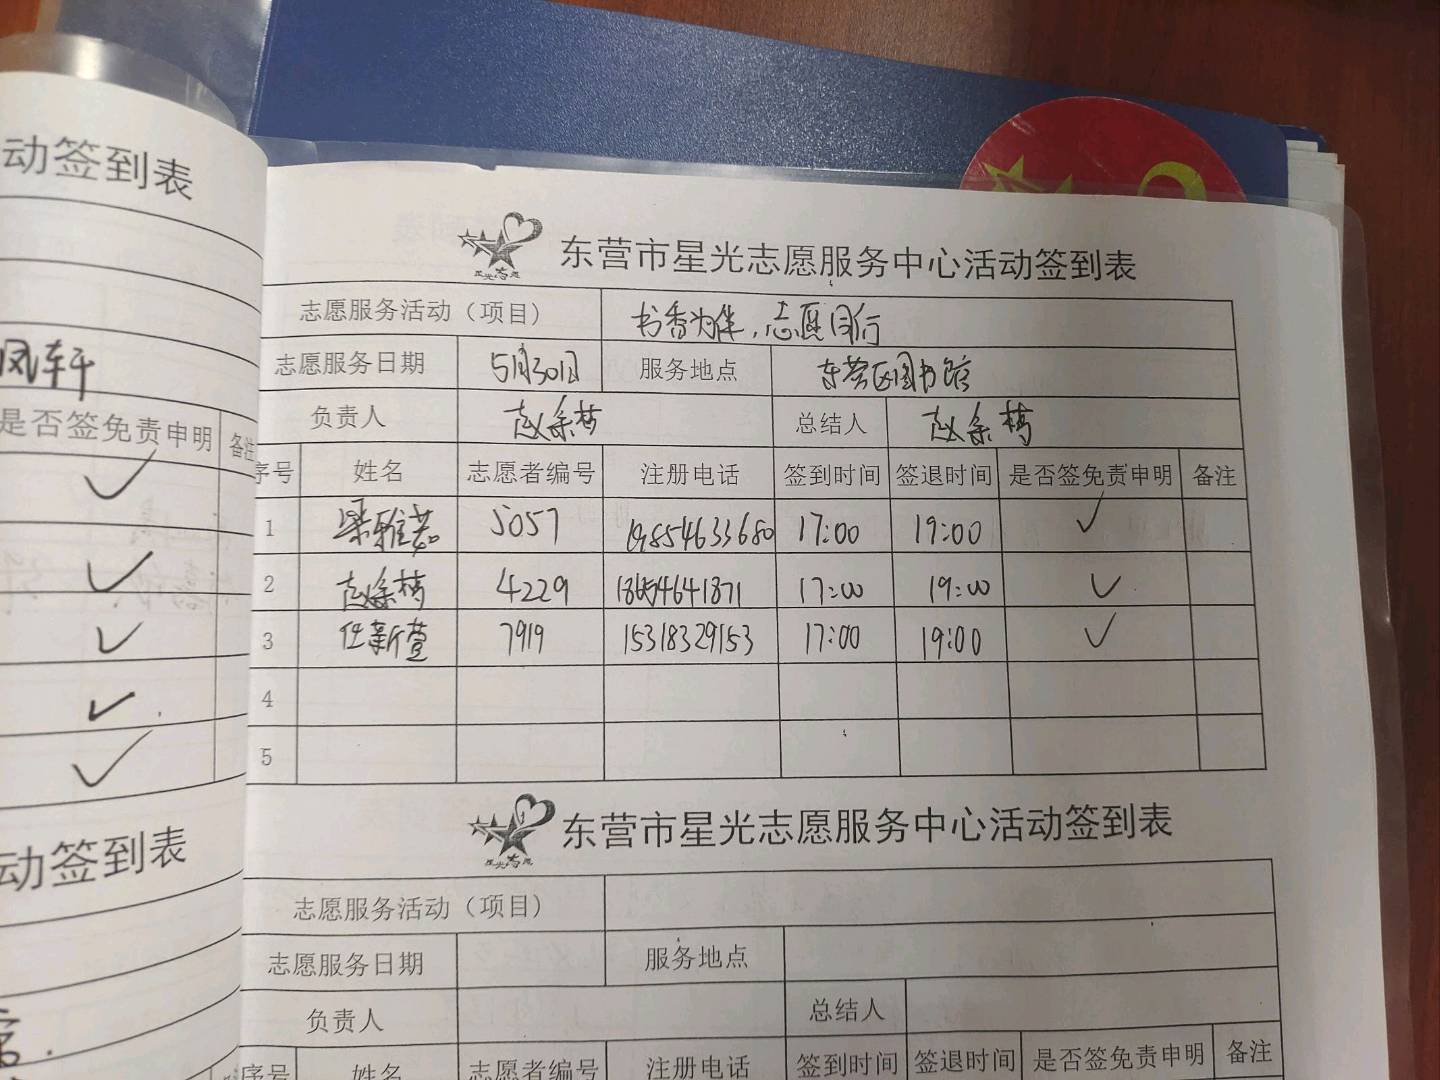 动签到表
风轩
是否签免责申明 备注
动签到表
星光志愿
东营市星光志愿服务中心活动签到表
志愿服务活动（项目） 书香为伴，志愿同行
志愿服务日期 5月30日 服务地点 东营区图书馆
负责人 总结人
序号 姓名 志愿者编号 注册电话 签到时间 签退时间 是否签免责申明 备注
1 梁雅茹 5057 19854633680 17:00 19:00 ✓
2 4229 18654641871 17:00 19:00 ✓
3 任新萱 7919 15318329153 17:00 19:00 ✓
4
5
星光志愿
东营市星光志愿服务中心活动签到表
志愿服务活动（项目）
志愿服务日期 服务地点
负责人 总结人
序号 姓名 志愿者编号 注册电话 签到时间 签退时间 是否签免责申明 备注